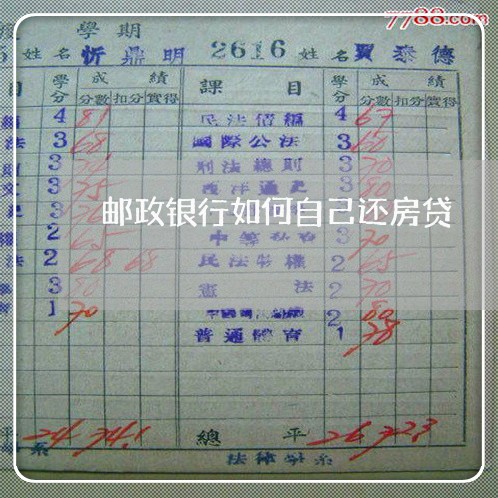 7788.com
學期
5 姓名 忻鼎明 2616 姓名 賈泰德
目 學分 成績 課目 學分 成績
分數 扣分 實得 分數 扣分 實得
4 81 民法債編 4 67
法 3 68 國際公法 3 60
3 刑法總則 3 70
文 3 75 西洋通史 3 80
邮政银行如何自己还房贷
2 65 3 70
法 2 68 68 民法物權 2 65
3 80 憲法 2 70
1 70 2 80
普通體育 1 78
平 24 74.1 總平 26 72.3
系 法律學系